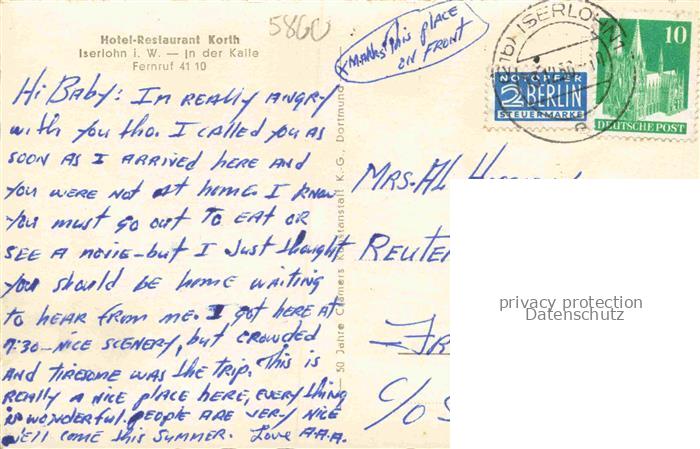 5860
Hotel-Restaurant Korth
Iserlohn i. W. — In der Kalle
Fernruf 41 10
X MARKS THIS PLACE
ON FRONT
ISERLOHN
NOTOPFER
2 BERLIN
STEUERMARKE
10
DEUTSCHE POST
Hi Baby: I'm really angry
with you tho. I called you as
soon as I arrived here and
you were not at home. I know
you must go out to eat or
see a movie - but I just thought
you should be home waiting
to hear from me. I got here at
7:30 - nice scenery, but crowded
and tiresome was the trip. This is
really a nice place here, everything
is wonderful. People are very nice
we'll come this summer. Love A.A.A.
50 Jahre Cramers Kunstanstalt K.-G., Dortmund
MRS. AL
REUTE
FR
C/O S
privacy protection
Datenschutz